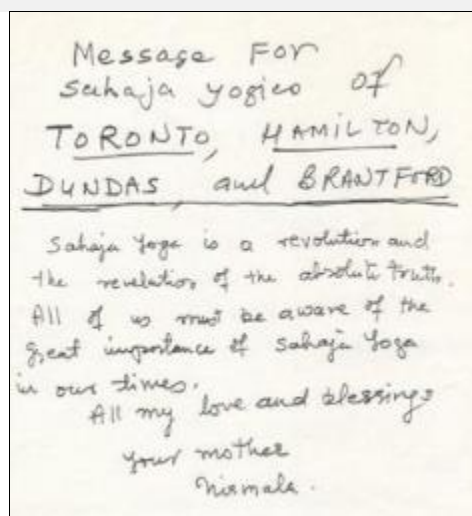 Message For
Sahaja Yogies of
TORONTO, HAMILTON,
DUNDAS, and BRANTFORD
Sahaja Yoga is a revolution and
the revelation of the absolute truth.
All of us must be aware of the
great importance of Sahaja Yoga
in our times.
All my love and blessings
your mother
Nirmala.